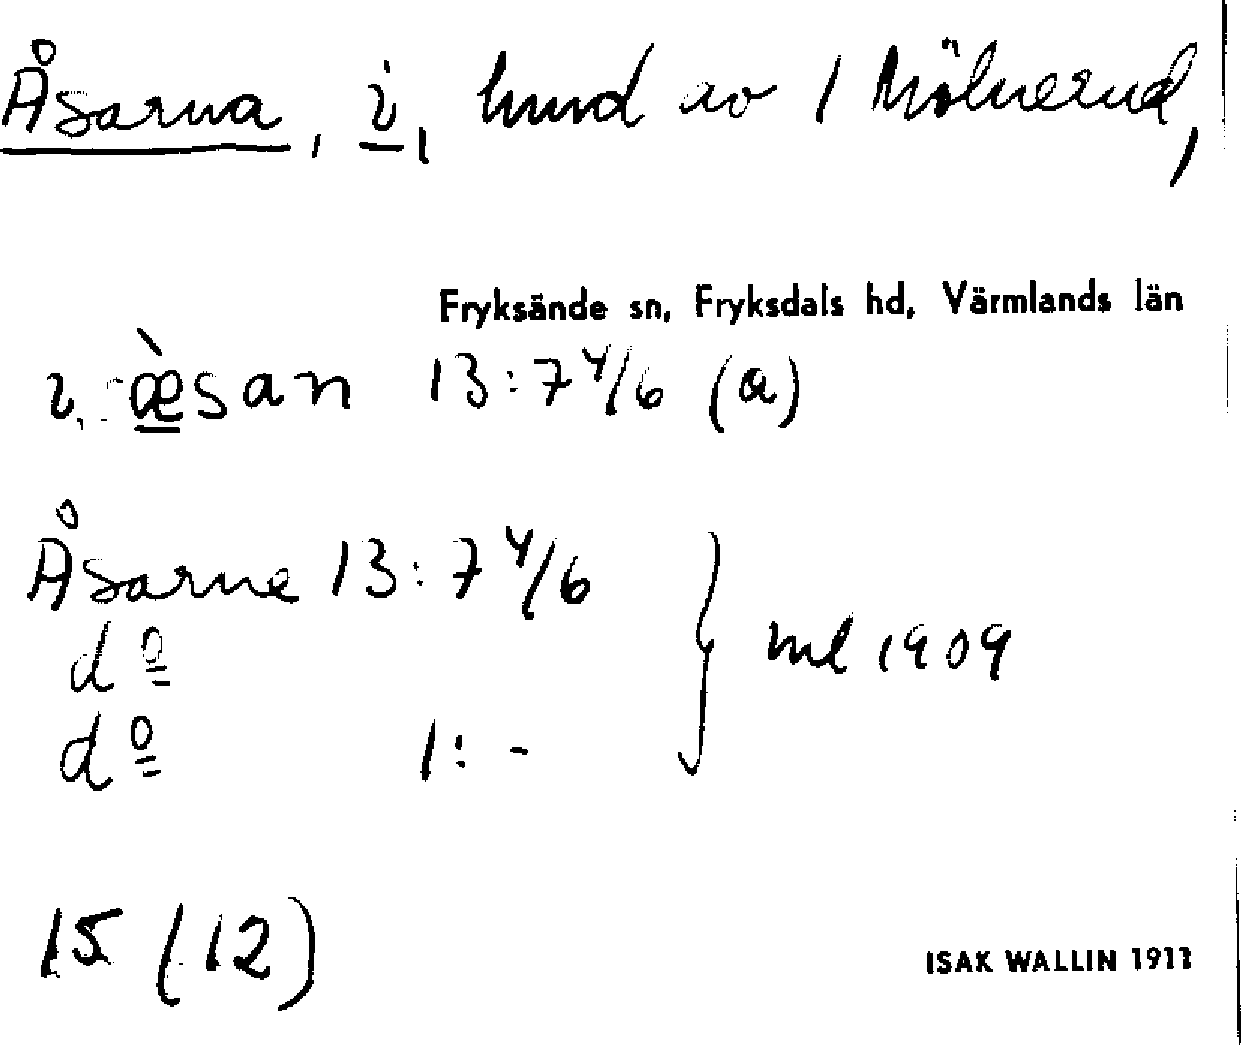 Åsarna, i, hmd av 1 Mölnerud,
Fryksände sn, Fryksdals hd, Värmlands län
i, æ̀san 13:7 4/6 (a)
Åsarne 13:7 4/6
dº
ml 1909
dº 1: -
15 (12)
ISAK WALLIN 1911